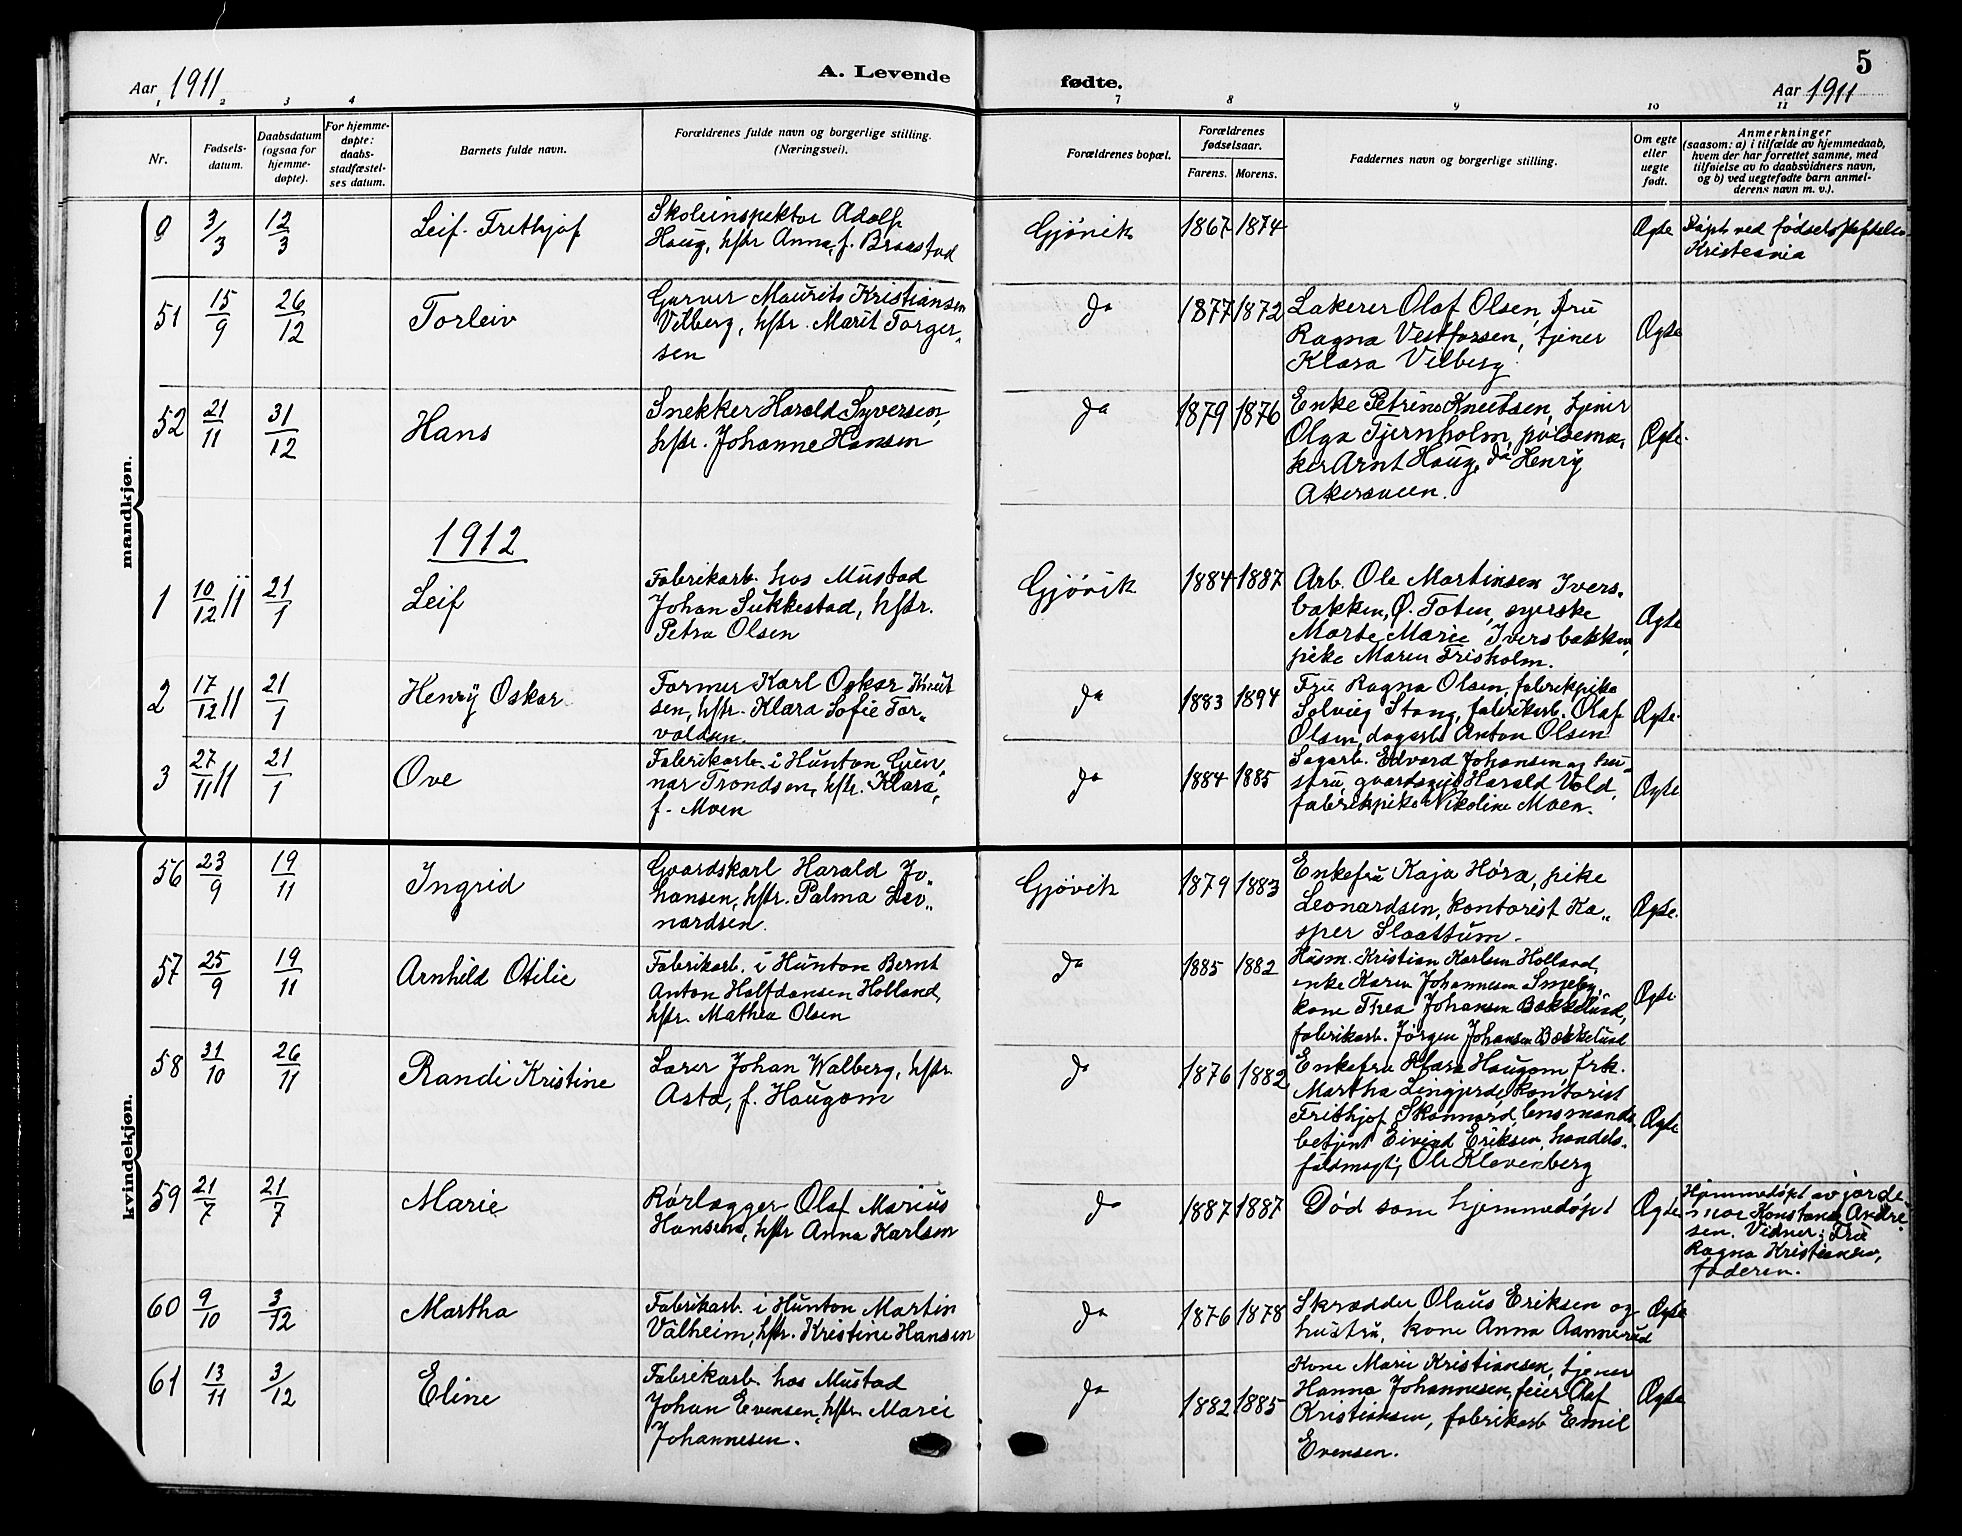 5
Aar 1911
A. Levende
fødte.
Aar 1911
1 2 3 4 7 8 9 10 11
Nr.
Fødsels-
datum.
Daabsdatum
(ogsaa for
hjemme-
døpte).
For hjemme-
døpte:
daabs-
stadfæstel-
ses datum.
Barnets fulde navn.
Forældrenes fulde navn og borgerlige stilling.
(Næringsvei).
Forældrenes bopæl.
Forældrenes
fødselsaar.
Farens. Morens.
Faddernes navn og borgerlige stilling.
Om egte
eller
uegte
født.
Anmerkninger
(saasom: a) i tilfælde av hjemmedaab,
hvem der har forrettet samme, med
tilføielse av to daabsvidners navn,
og b) ved uegtefødte barn anmel-
derens navn m. v.).
mandkjøn.
9 3/3 12/3 Leif Frithjof
Skoleinspektør Adolf
Haug, hstr Anna, f. Braastad
Gjøvik 1867 1874 Ægte
Døpt ved fødselsstiftelsen
Kristiania
51 15/9 26/12 Torleiv
Garver Maurits Kristiansen
Vilberg, hstr. Marit Torger-
sen
do 1877 1872
Lakerer Olaf Olsen, fru
Ragna Vestfossen, tjener
Klara Vilberg.
Ægte
52 21/11 31/12 Hans
Snekker Harald Syversen,
hstr. Johanne Hansen
do 1879 1876
Enke Petrine Knutsen, tjener
Olga Tjernholm, pølsema-
ker Arnt Haug, do Henry
Akersveen.
Ægte.
1912
1 10/12 11 21/1 Leif
Fabrikarb. hos Mustad
Johan Sukkestad, hstr.
Petra Olsen
Gjøvik 1884 1887
Arb. Ole Martinsen Ivers-
bakken, Ø. Toten, syerske
Marte Marie Iversbakken,
pike Maren Frisholm.
Ægte
2 17/12 11 21/1 Henry Oskar
Former Karl Oskar Knut
sen, hstr. Klara Sofie Tor-
valdsen.
do 1883 1894
Fru Ragna Olsen, fabrikpike
Solveig Stang, fabrikarb. Olaf
Olsen, dagarb. Anton Olsen
Ægte.
3 27/11 11 21/1 Ove
Fabrikarb. i Hunton Gun-
nar Trondsen, hstr. Klara,
f. Moen
do 1884 1885
Sagarb. Edvard Johansen og hu-
stru, gaardsgut Harald Vold,
fabrikpike Nikoline Moen.
Ægte
kvindekjøn.
56 23/9 19/11 Ingrid
Gaardskarl Harald Jo-
hansen, hstr. Palma Leo-
nardsen.
Gjøvik 1879 1883
Enkefru Kaja Høra, pike
Leonardsen, kontorist Ka-
sper Slaattum.
Ægte.
57 25/9 19/11 Arnhild Otilie
Fabrikarb. i Hunton Bernt
Anton Halfdansen Holland,
hstr. Mathea Olsen
do 1885 1882
Husm. Kristian Karlsen Holland,
enke Karen Johannesen Smeby,
kone Thea Johansen Bækkelund,
fabrikarb. Jørgen Johansen Bækkelund
Ægte
58 31/10 26/11 Randi Kristine
Lærer Johan Walberg, hstr.
Asta, f. Haugom
do 1876 1882
Enkefru Klara Haugom, frk.
Martha Lingjerde, kontorist
Frithjof Skonnord, lensmands
betjent Eivind Eriksen, handels-
fuldmægtig Ole Klevenberg
Ægte
59 21/7 21/7 Marie
Rørlægger Olaf Marius
Hansen, hstr Anna Karlsen
do 1887 1887
Død som hjemmedøpt
Ægte
Hjemmedøpt av jorde-
mor Konstance Andre-
sen. Vidner: Fru
Ragna Kristiansen,
faderen.
60 9/10 3/12 Martha
Fabrikarb. i Hunton Martin
Valheim, hstr. Kristine Hansen
do 1876 1878
Skrædder Olaus Eriksen og
hustru, kone Anna Aannerud
Ægte
61 13/11 3/12 Eline
Fabrikarb. hos Mustad
Johan Evensen, hstr. Marie
Johannesen.
do 1882 1885
Kone Marie Kristiansen, tjener
Hanna Johannesen, feier Olaf
Kristiansen, fabrikarb Emil
Evensen.
Ægte